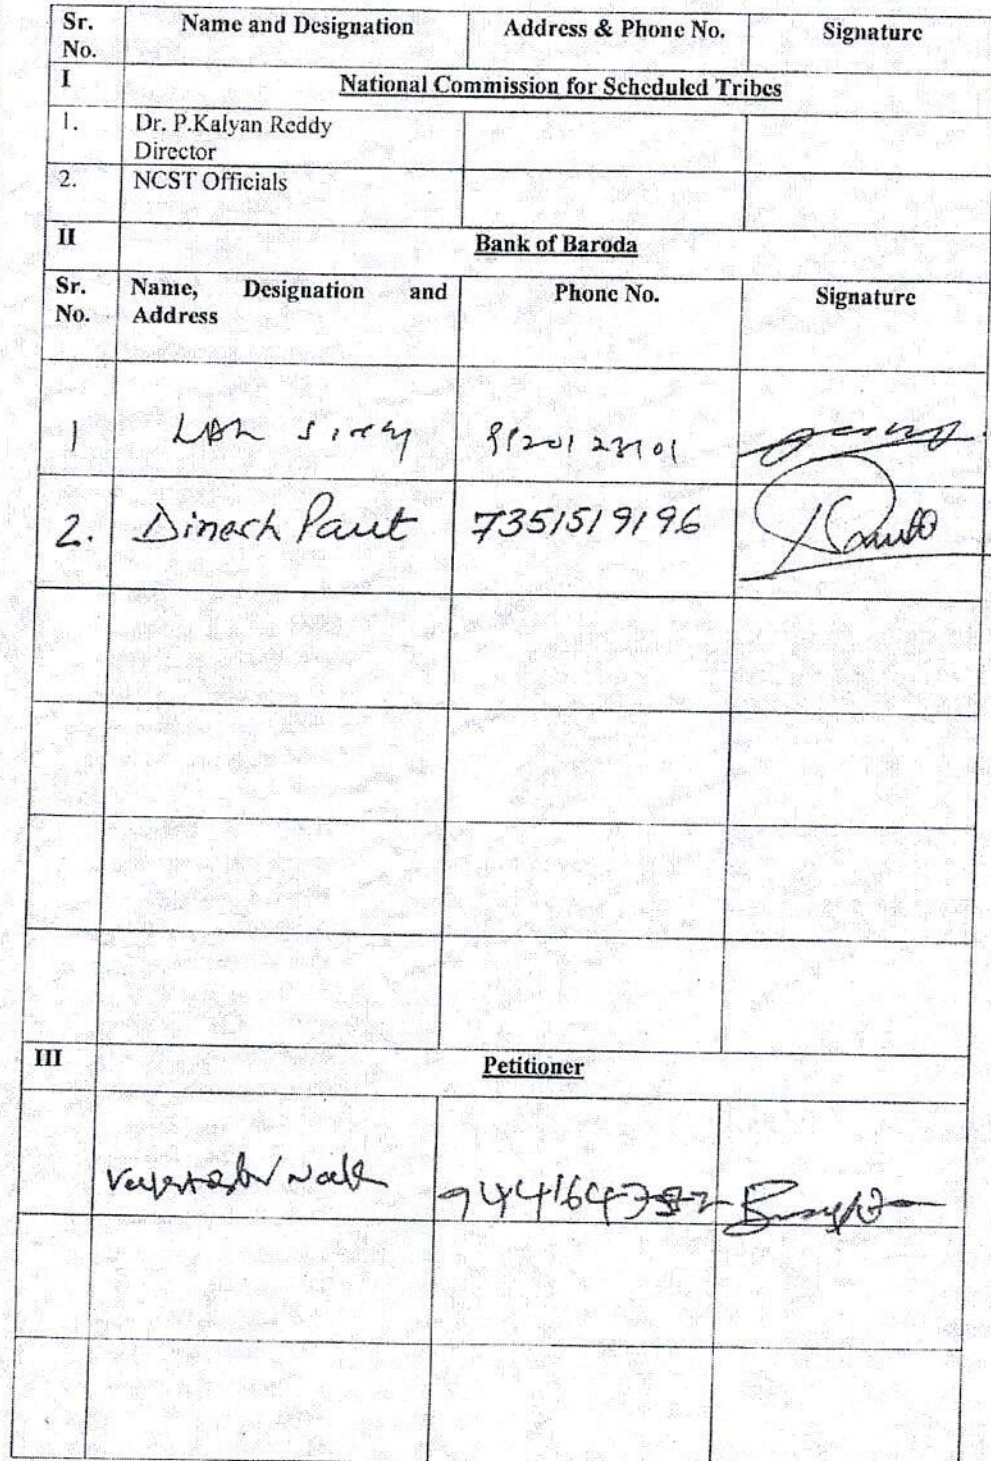 Sr. No. Name and Designation Address & Phone No. Signature
I National Commission for Scheduled Tribes
1. Dr. P.Kalyan Reddy
Director
2. NCST Officials
II Bank of Baroda
Sr. No. Name, Designation and Address Phone No. Signature
1
2. Dinesh Pant 7351519196
III Petitioner